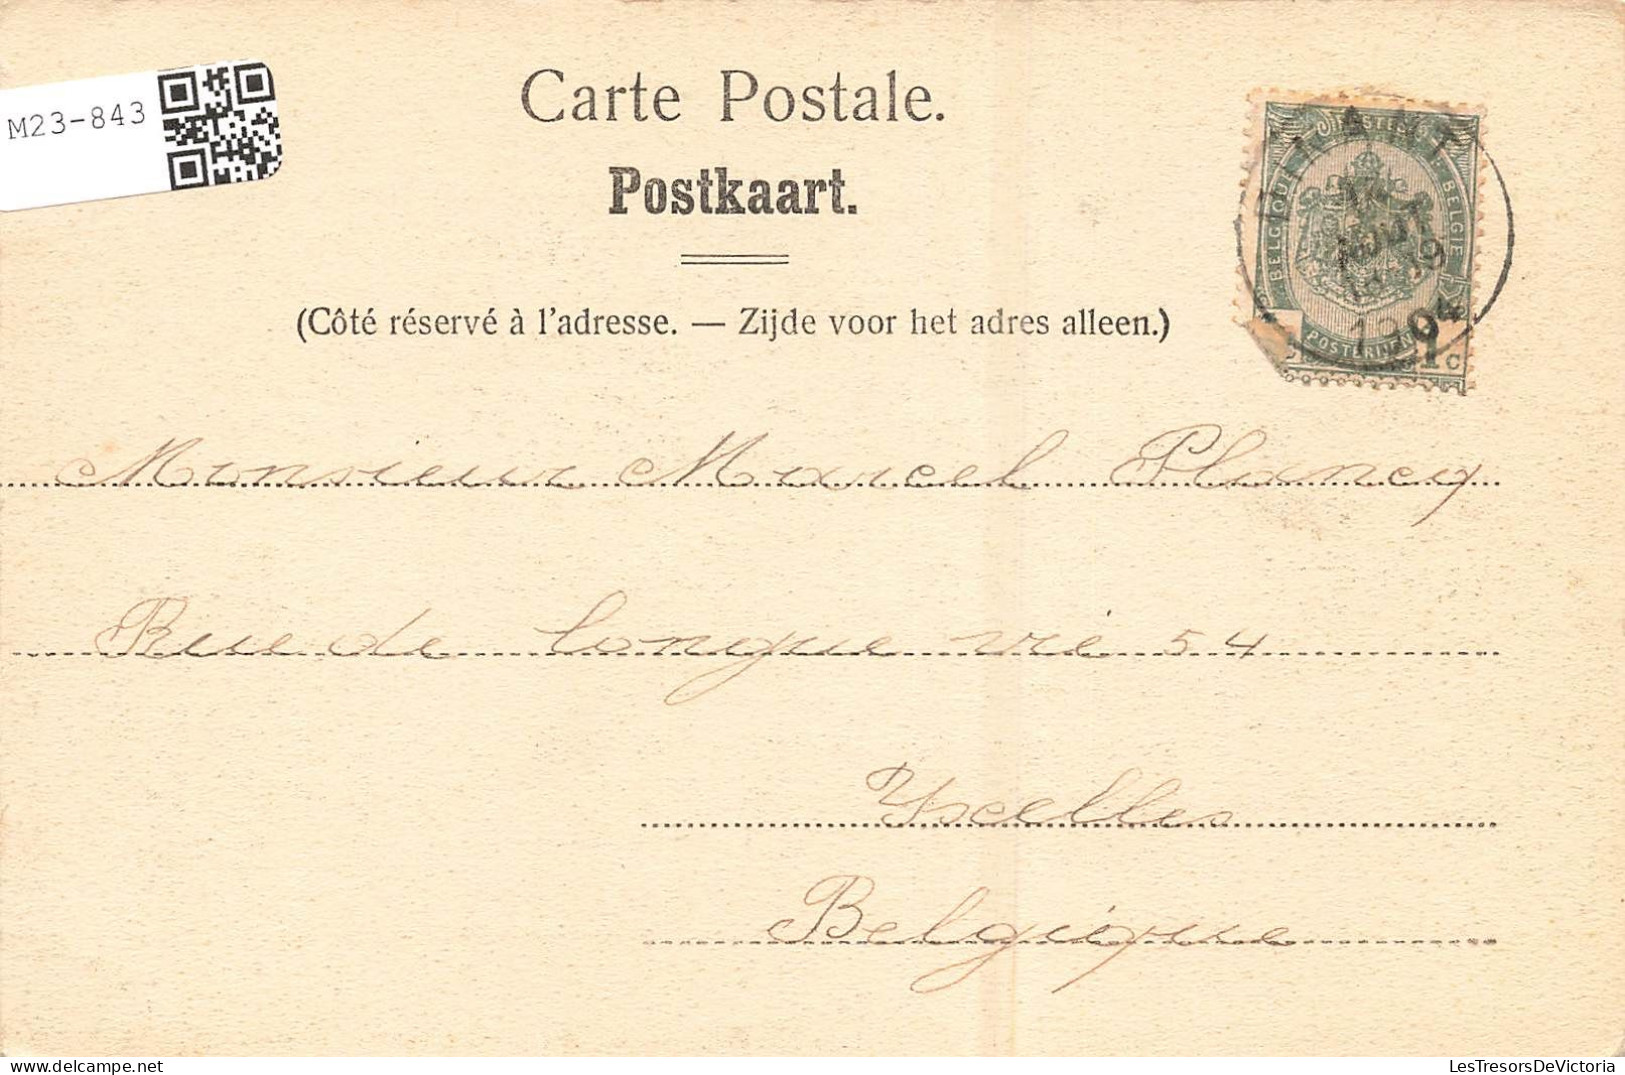 M23-843
Carte Postale.
Postkaart.
(Côté réservé à l'adresse. — Zijde voor het adres alleen.)
POSTES
BELGIQUE BELGIE
POSTERIJEN
1 c
DINANT
AOUT
1904
Monsieur Marcel Plancq
Rue de longue vie 54
Yxelles
Belgique
LesTresorsDeVictoria